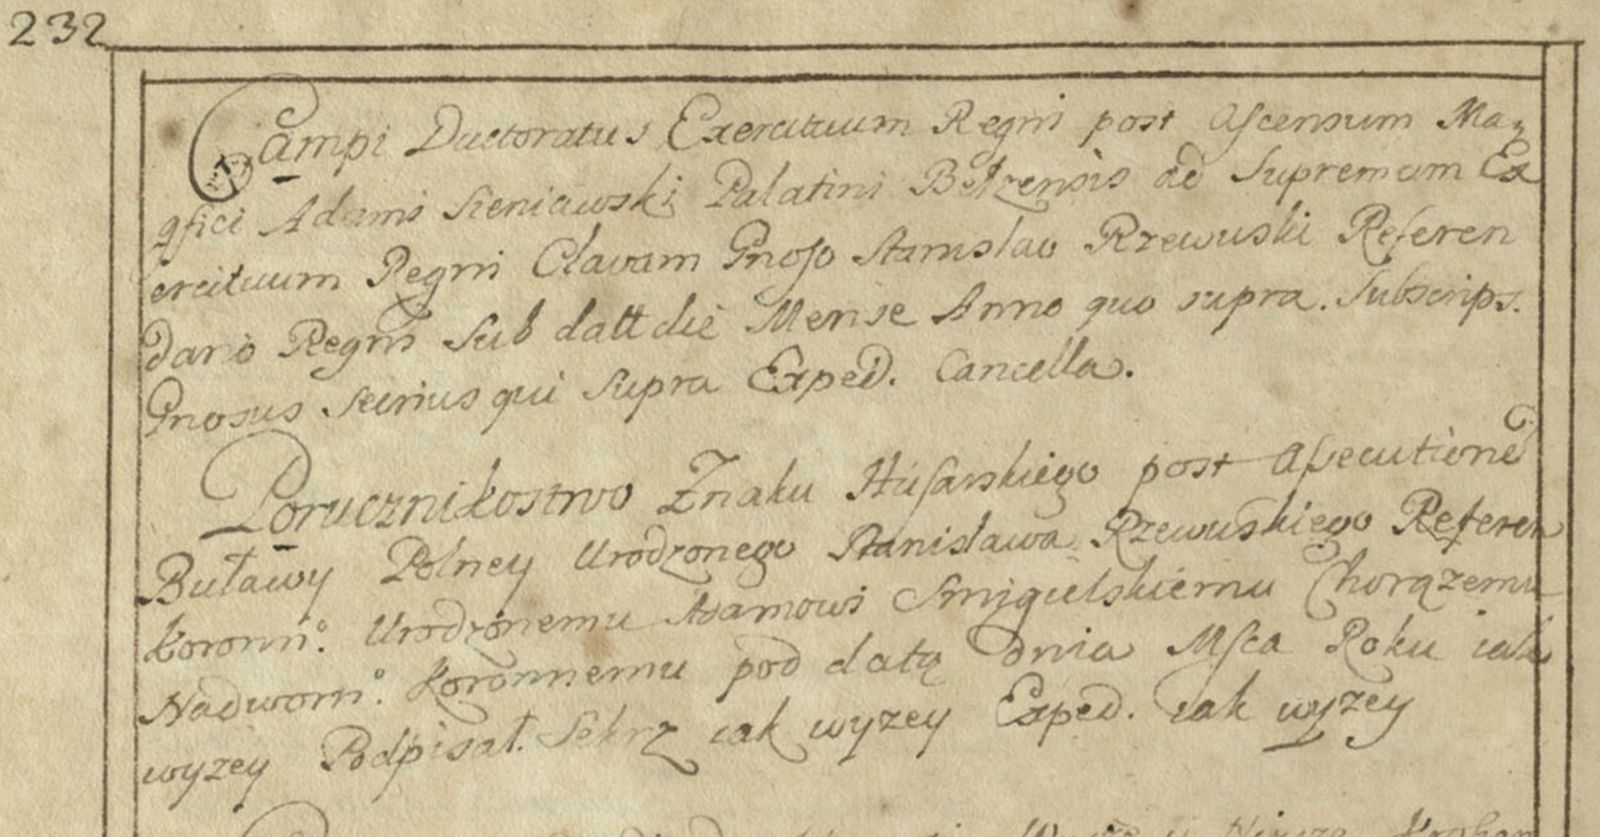 232
Campi Ductoratus Exercituum Regni post Ascensum Ma-
gfici Adami Sieniawski Palatini Betzensis ad Supremam Ex
ercituum Regni Clavam Gnoso Stanislao Rzewuski Referen
dario Regni Sub datt die Mense Anno quo supra. Subscrips.
Gnosus Secrius qui Supra Exped. Cancella.
Porucznikostwo Znaku Husarskiego post Assecutione
Buławy Polney Urodzonego Stanisława Rzewuskiego Referen
koronn:o Urodzonemu Adamowi Smigielskiemu Chorązemu
Nadworn:o koronnemu pod datą dnia Msca Roku iak
wyzey Podpisał. Sekrz iak wyzey Exped. iak wyzey